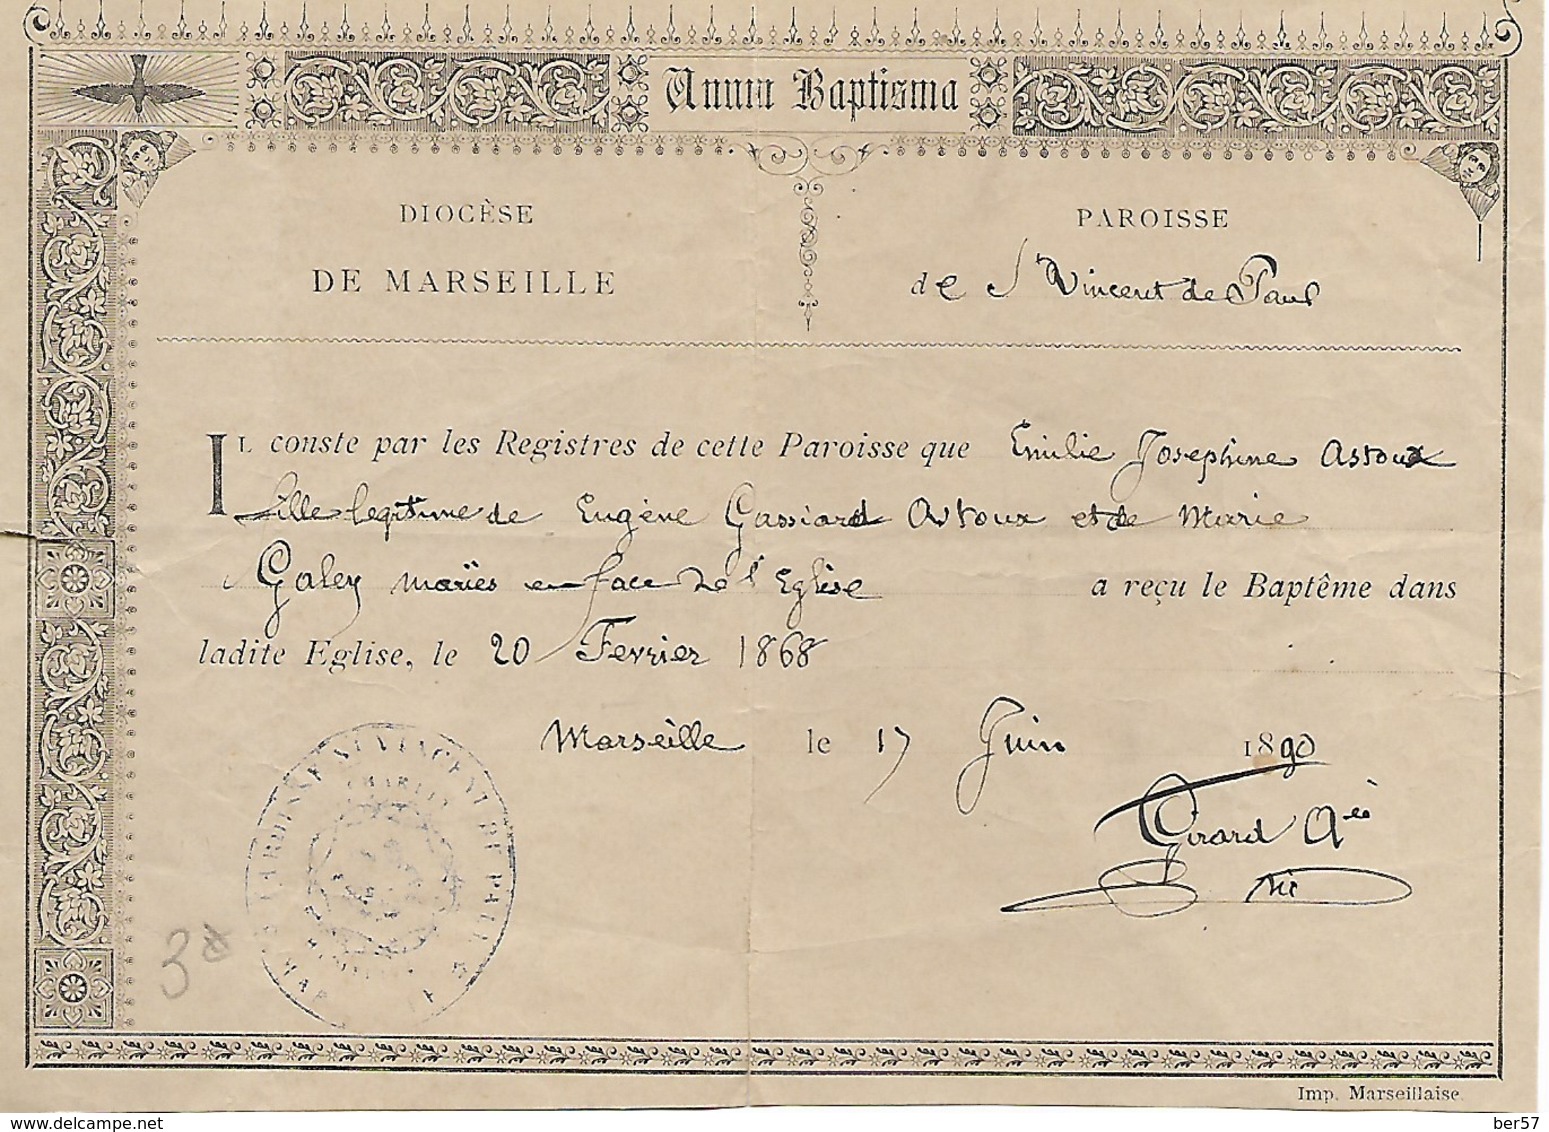 Unum Baptisma
DIOCÈSE
DE MARSEILLE
PAROISSE
de St Vincent de Paul
IL conste par les Registres de cette Paroisse que Emilie Josephine Astoux
fille legitime de Eugène Gassiard Astoux et de Marie
Galey mariés en face de l'Eglise a reçu le Baptême dans
ladite Eglise, le 20 Fevrier 1868
Marseille le 17 Juin 1890
Girard
vic
PAROISSE ST VINCENT DE PAUL
3
Imp. Marseillaise.
www.delcampe.net
ber57